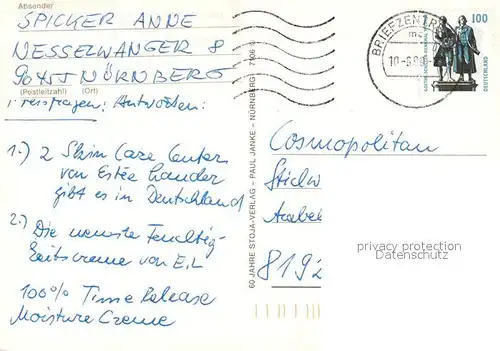 Absender
SPICKER ANNE
NESSELWANGER 8
90455 NÜRNBERG
(Postleitzahl) (Ort)
Preisfragen: Antworten:
1.) 2 Skin Care Center
von Estée Lauder
gibt es in Deutschland
2.) Die neueste Feuchtig-
keitscreme von E.L
100% Time Release
Moisture Creme
60 JAHRE STOJA-VERLAG – PAUL JANKE – NÜRNBERG
BRIEFZENTR
100
DEUTSCHLAND
Cosmopolitan
Stichw
Arabel
privacy protection
Datenschutz
8192